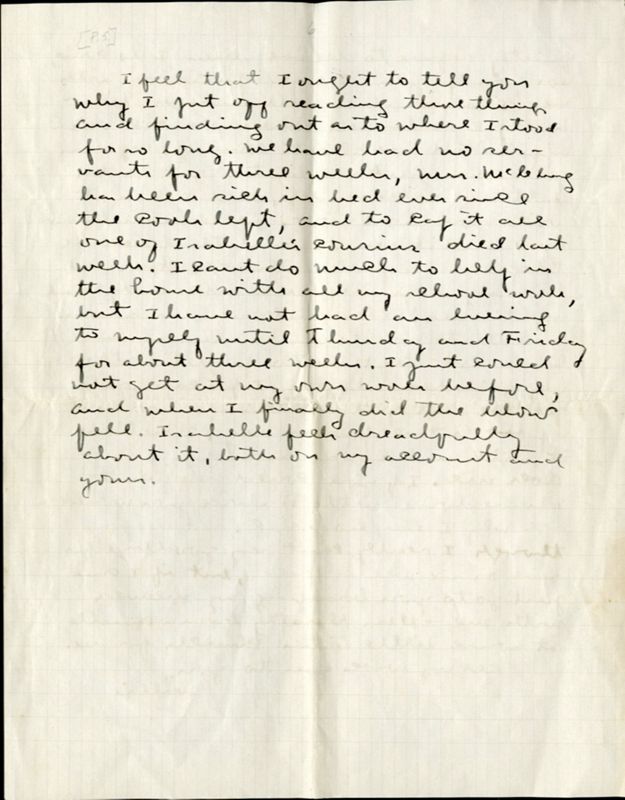 [P.S]
6
I feel that I ought to tell you
why I put off reading those things
and finding out as to where I stood
for so long. We have had no ser-
vants for three weeks, Mrs. McClung
has been sick in bed ever since
the cook left, and to cap it all
one of Isabelle's cousins died last
week. I cant do much to help in
the house with all my school work,
but I have not had an evening
to myself until Thursday and Friday
for about three weeks. I just could
not get at my own work before,
and when I finally did the blow
fell. Isabelle feels dreadfully
about it, both on my account and
yours.